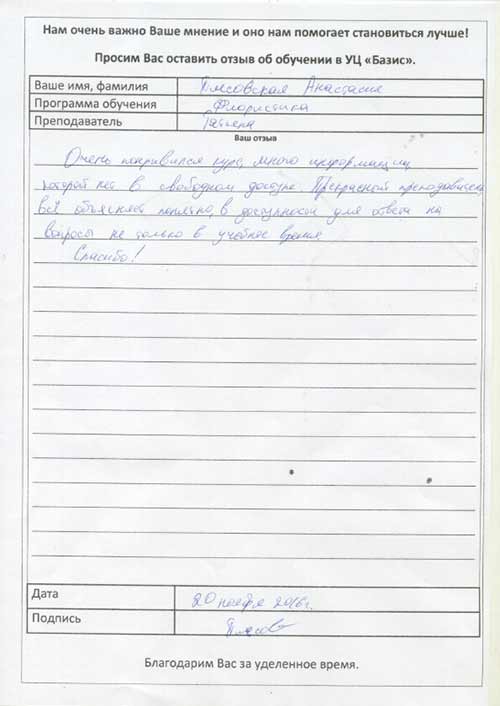 Нам очень важно Ваше мнение и оно нам помогает становиться лучше!
Просим Вас оставить отзыв об обучении в УЦ «Базис».
Ваше имя, фамилия Плесовская Анастасия
Программа обучения „Флористика
Преподаватель Татьяна
Ваш отзыв
Очень понравился курс, много информации
которой нет в свободном доступе. Прекрасной преподаватель,
всё объясняет понятно, в доступности для ответа на
вопросы не только в учебное время.
Спасибо!
Дата 20 ноября 2016 г.
Подпись Плесов
Благодарим Вас за уделенное время.